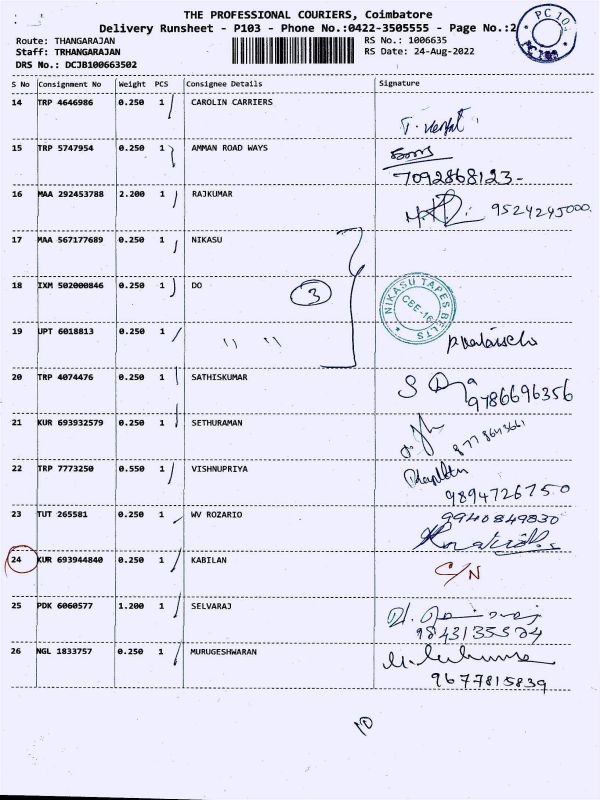 THE PROFESSIONAL COURIERS, Coimbatore
Delivery Runsheet - P103 - Phone No.:0422-3505555 - Page No.:2
Route: THANGARAJAN RS No.: 1006635
Staff: TRHANGARAJAN RS Date: 24-Aug-2022
DRS No.: DCJB100663502
S No Consignment No Weight PCS Consignee Details Signature
14 TRP 4646986 0.250 1 CAROLIN CARRIERS
15 TRP 5747954 0.250 1 AMMAN ROAD WAYS
7092868123-
16 MAA 292453788 2.200 1 RAJKUMAR 9524245000.
17 MAA 567177689 0.250 1 NIKASU
18 IXM 502000846 0.250 1 DO 3
NIKASU TAPES BELTS
CBE-16
19 UPT 6018813 0.250 1 " "
20 TRP 4074476 0.250 1 SATHISKUMAR
9786696356
21 KUR 693932579 0.250 1 SETHURAMAN
22 TRP 7773250 0.550 1 VISHNUPRIYA
9894726750
23 TUT 265581 0.250 1 WV ROZARIO 9940849830
24 KUR 693944840 0.250 1 KABILAN C/N
25 PDK 6060577 1.200 1 SELVARAJ
9843135524
26 NGL 1833757 0.250 1 MURUGESHWARAN
9677815839